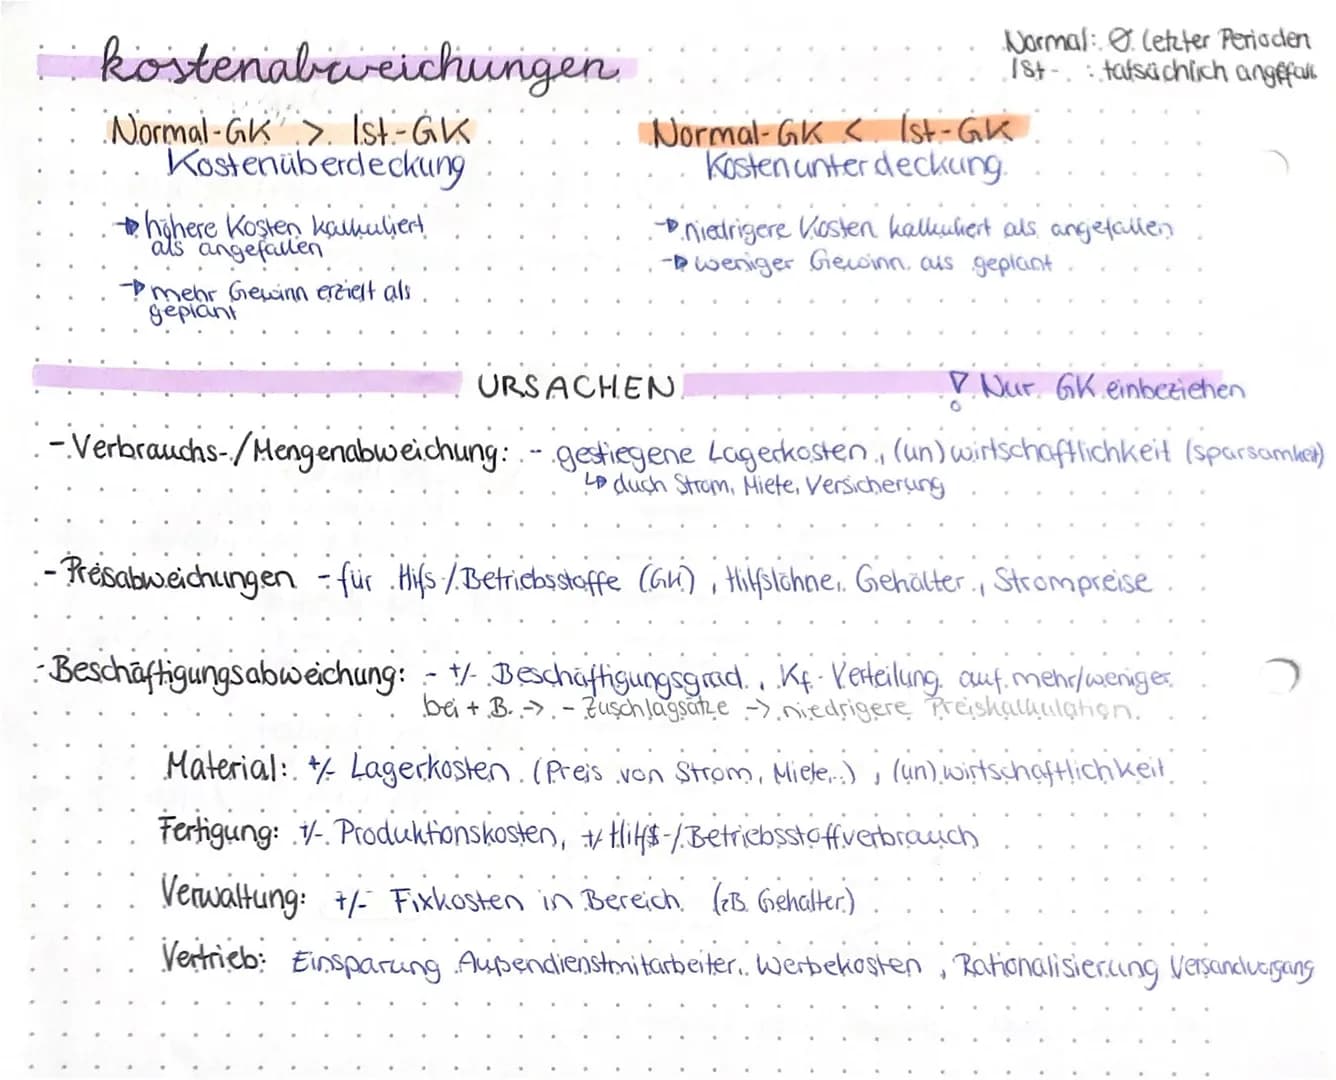 kostenabweichungen
Normal: Ø letzter Perioden
Ist- : tatsächlich angefall.
Normal-GK > Ist-GK
Kostenüberdeckung
→ höhere Kosten kalkuliert
als angefallen
→ mehr Gewinn erzielt als
geplant
Normal-GK < Ist-GK
Kostenunterdeckung
→ niedrigere Kosten kalkuliert als angefallen
→ weniger Gewinn als geplant
URSACHEN
! Nur GK einbeziehen
- Verbrauchs-/Mengenabweichung: - gestiegene Lagerkosten, (un)wirtschaftlichkeit (sparsamkeit)
↳ duch Strom, Miete, Versicherung
- Preisabweichungen - für Hifs-/Betriebsstoffe (GK), Hilfslöhne, Gehälter, Strompreise
- Beschäftigungsabweichung: - +/- Beschäftigungsgrad, Kf-Verteilung auf mehr/weniger
bei + B. → - Zuschlagsätze → niedrigere Preiskalkulation
Material: +/- Lagerkosten (Preis von Strom, Miete,..), (un)wirtschaftlichkeit
Fertigung: +/- Produktionskosten, +/- Hilfs-/Betriebsstoffverbrauch
Verwaltung: +/- Fixkosten in Bereich (zB. Gehalter)
Vertrieb: Einsparung Außendienstmitarbeiter, Werbekosten, Rationalisierung Versandvorgang